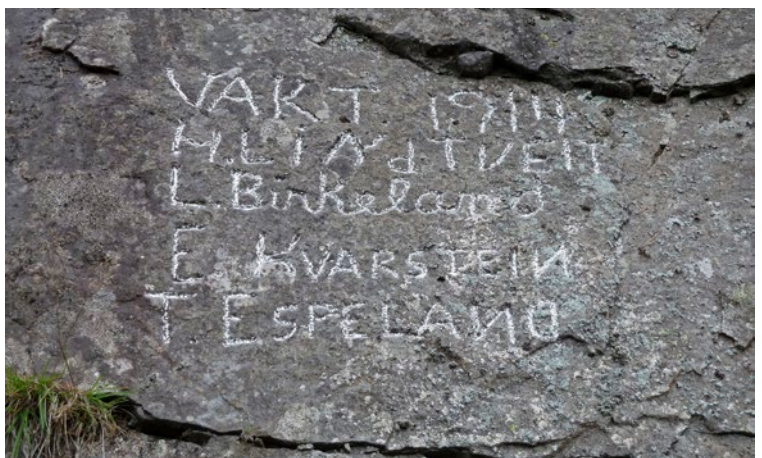 VAKT 1914
H. LINDTVEIT
L. Birkeland
E. KVARSTEIN
T ESPELAND